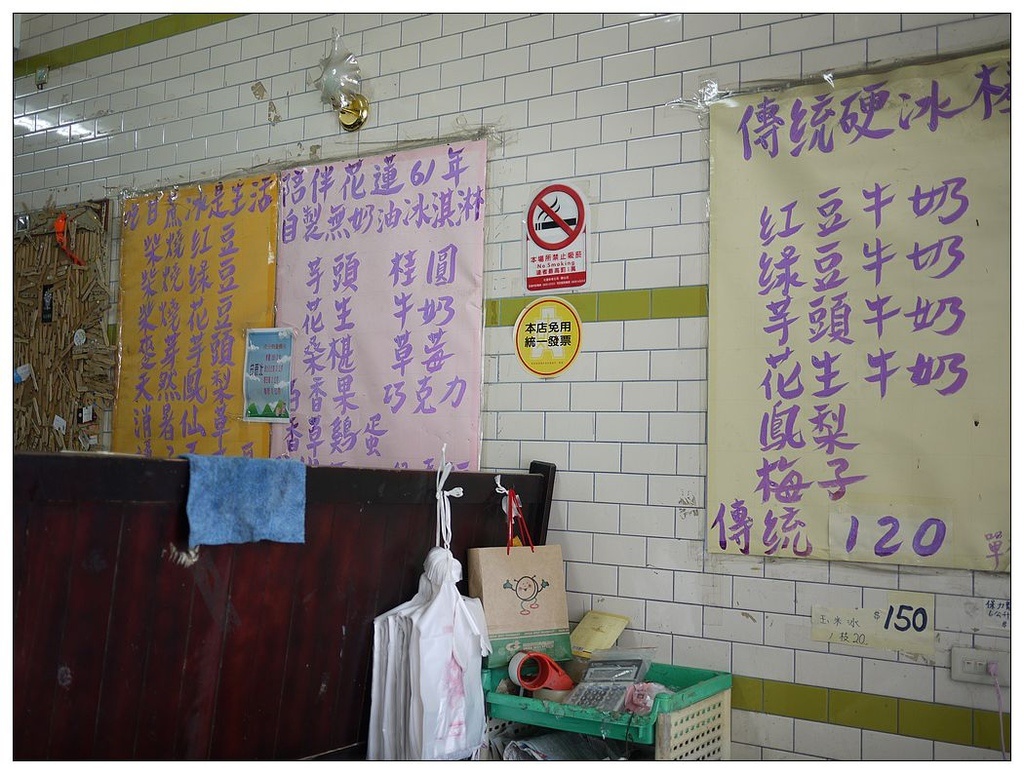 吃甘蔗冰是生活
柴燒紅豆
柴燒綠豆
柴燒花豆
麥芽芋頭
天然鳳梨
消暑仙草
陪伴花蓮61年
自製無奶油冰淇淋
芋頭 桂圓
花生 牛奶
桑椹 草莓
百香果 巧克力
香草雞蛋
本場所禁止吸菸
No Smoking
違者最高罰1萬
本店免用
統一發票
傳統硬冰棒
红豆牛奶
绿豆牛奶
芋頭牛奶
花生牛奶
鳳梨
梅子
傳統 120
單
玉米冰 $150
1枝20